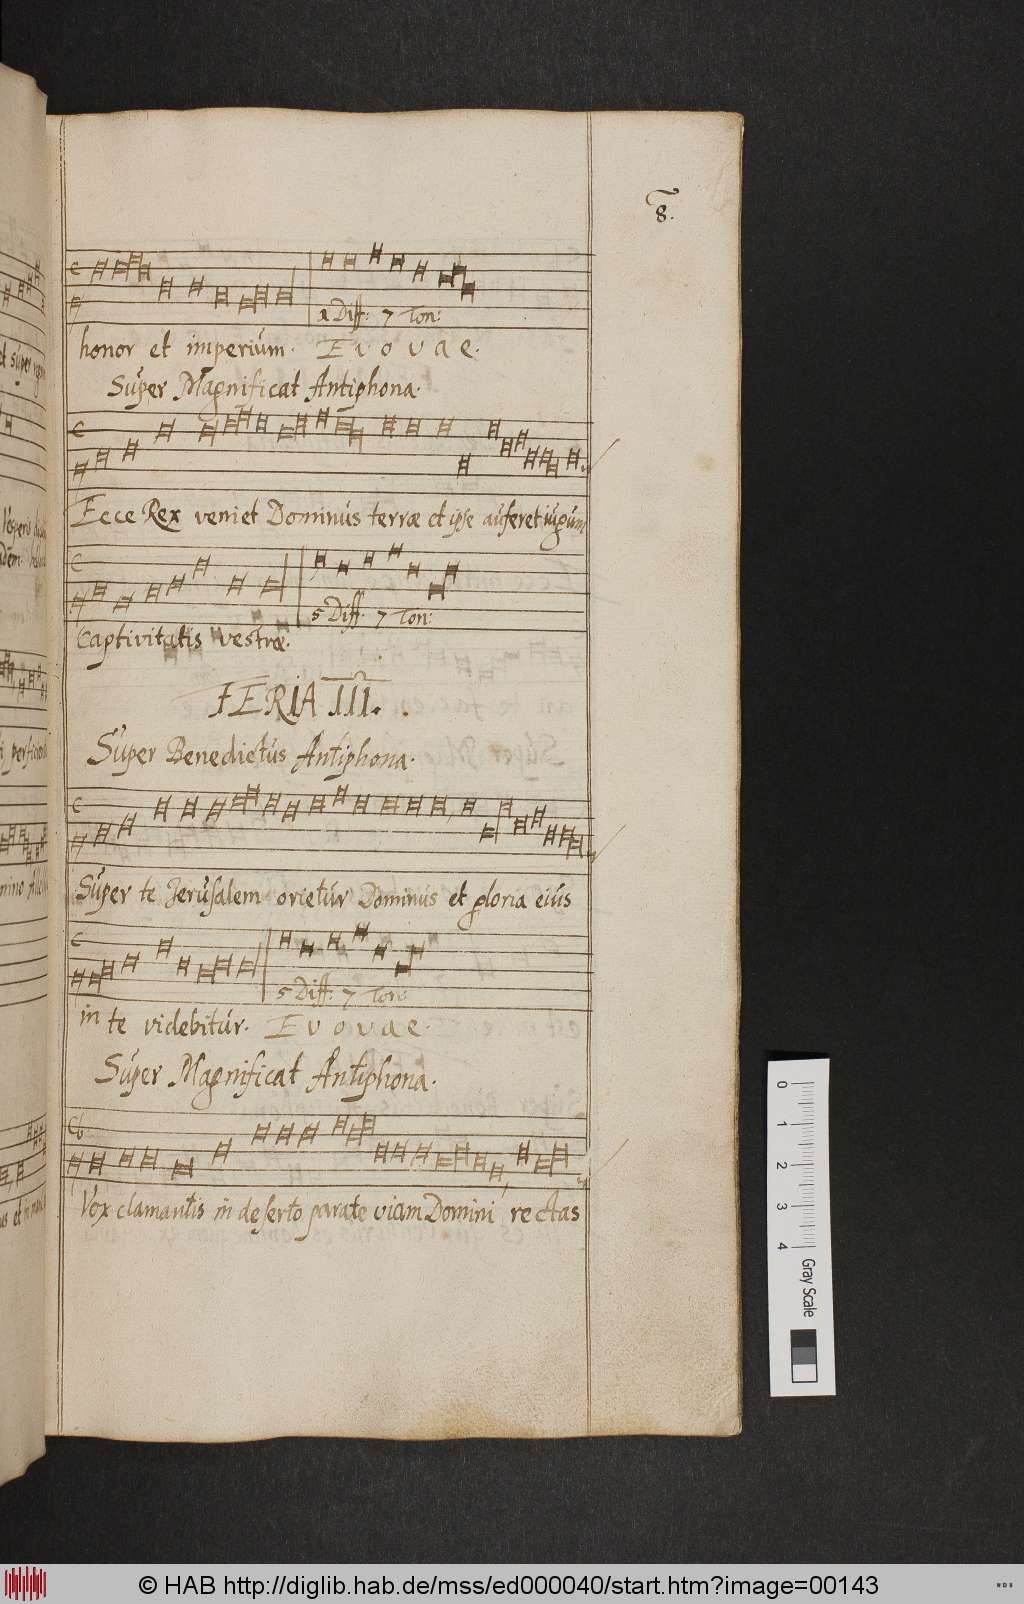 8.
1 Diff: 7 Ton:
honor et imperium. E v o v a e.
Super Magnificat Antiphona.
Ecce Rex veniet Dominus terræ et ipse auferet iugum
5 Diff. 7 Ton:
Captivitatis vestræ.
FERIA III.
Super Benedictus Antiphona.
Super te Jerusalem orietur Dominus et gloria eius
5 Diff: 7 Ton:
in te videbitur. E v o v a e.
Super Magnificat Antiphona.
Vox clamantis in deserto parate viam Domini rectas
0 1 2 3 4 Gray Scale
© HAB http://diglib.hab.de/mss/ed000040/start.htm?image=00143